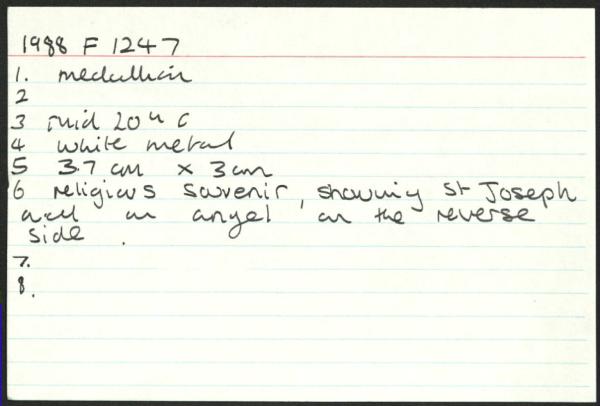 1988 F 1247
1. medallion
2
3 mid 20th C
4 white metal
5 3.7 cm x 3cm
6 religious souvenir, showing St Joseph
and an angel on the reverse
side.
7.
8.